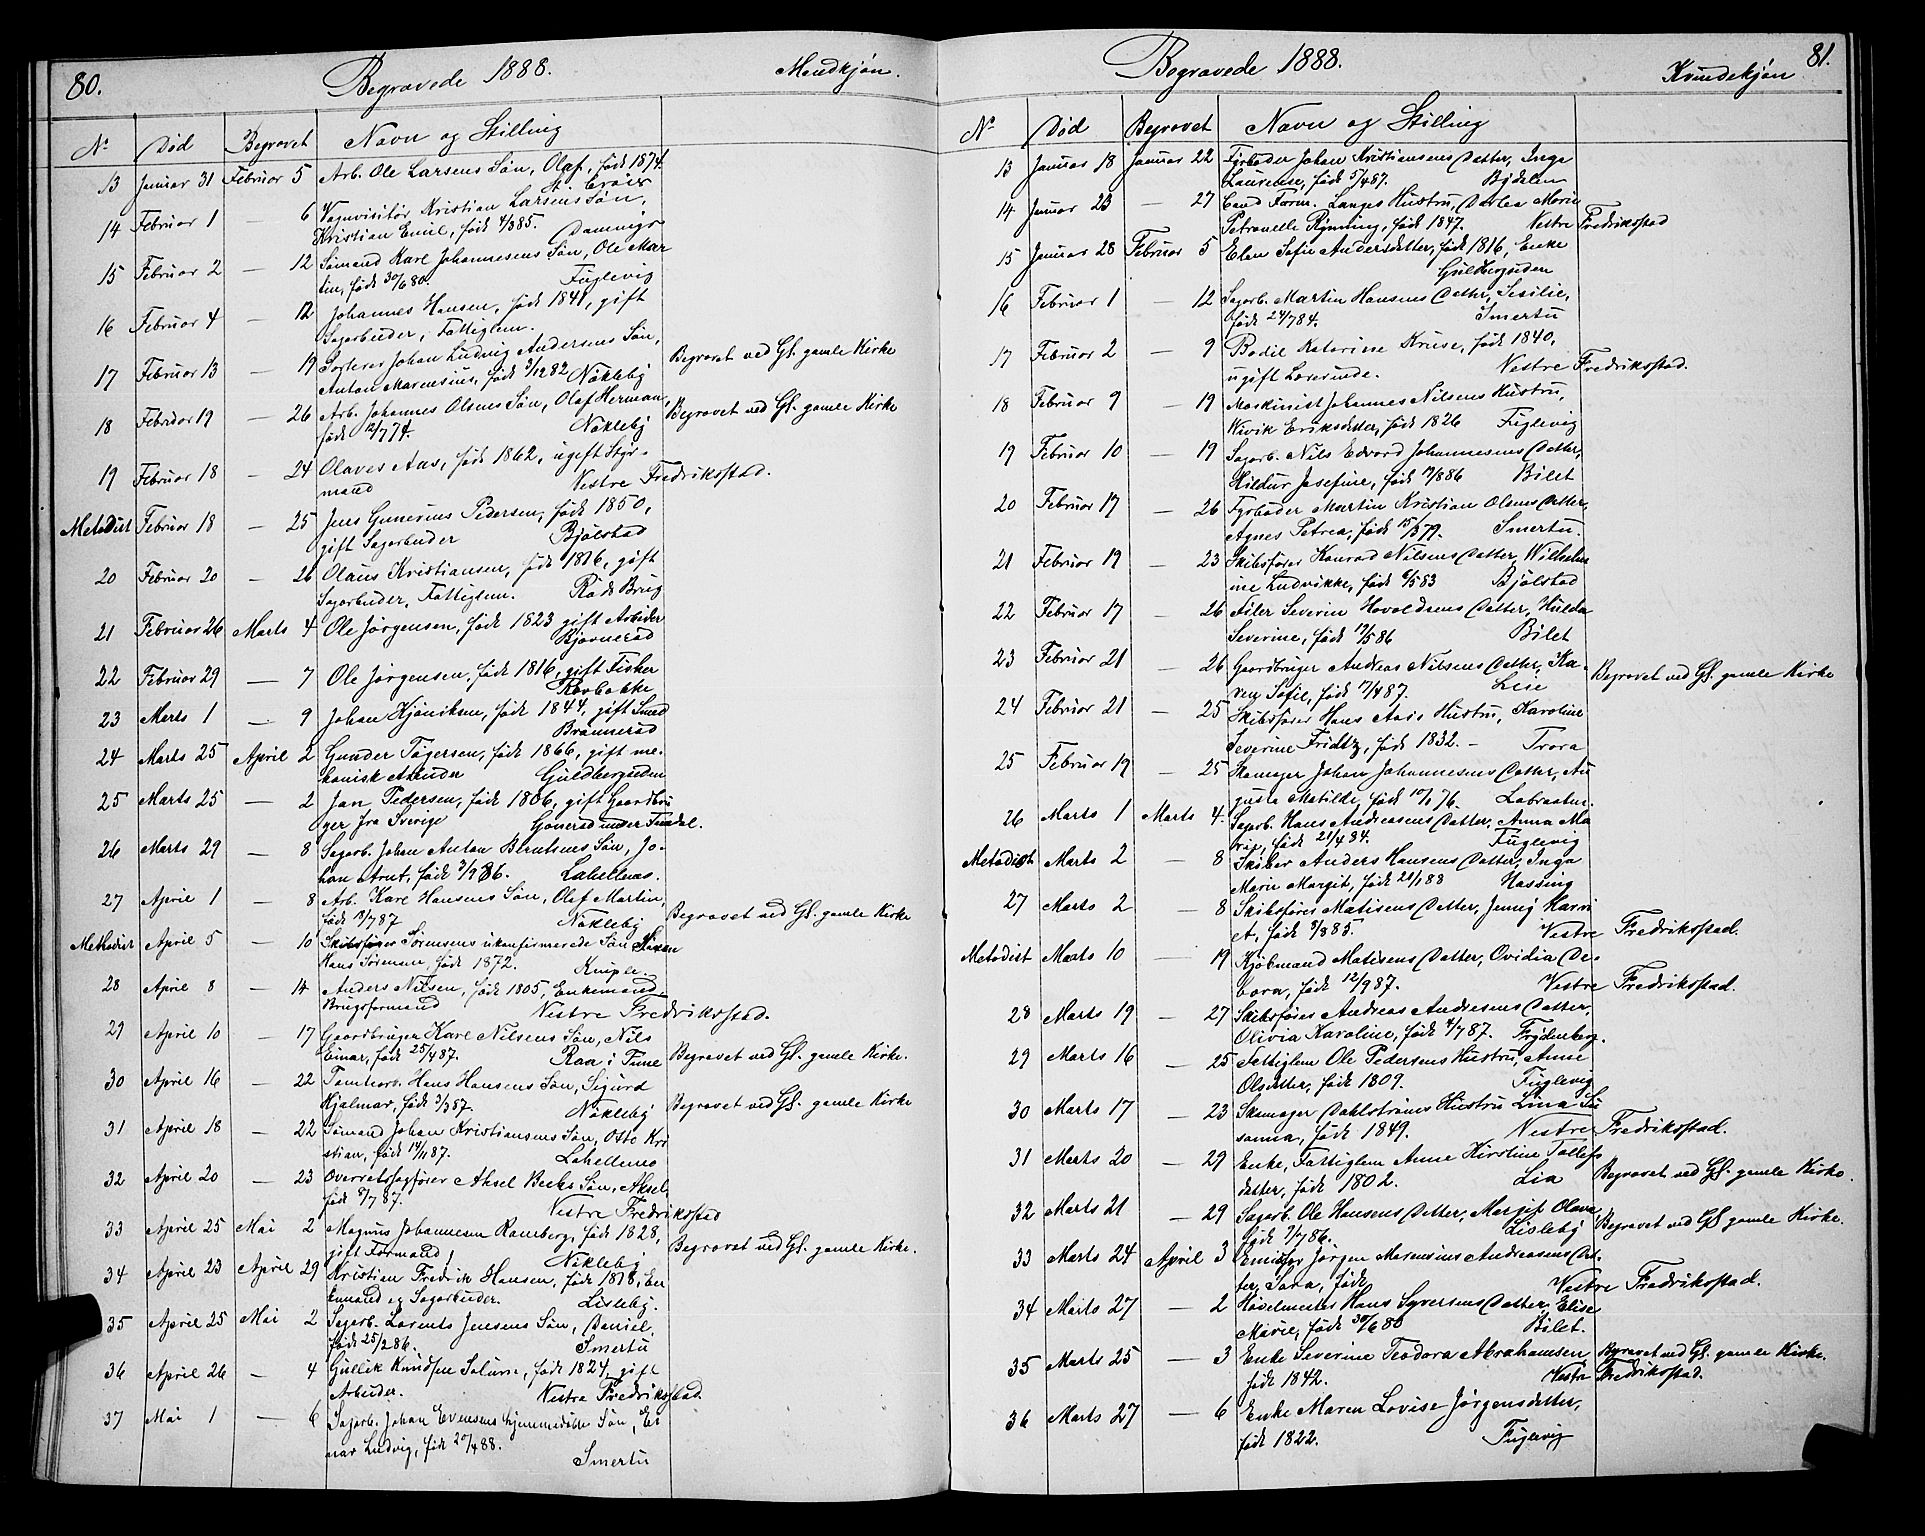 80.
Begravede 1888.
Mandkjøn.
No Død Begravet Navn og Stilling
13 Januar 31 Februar 5 Arb. Ole Larsens Søn, Olaf, født 1874.
St. Croix
14 Februar 1 — 6 Vognvisitør Kristian Larsens Søn,
Kristian Emil, født 4/885. Damnigs
15 Februar 2 — 12 Sømand Karl Johannesens Søn, Ole Mar
tin, født 30/680. Fuglevig
16 Februar 4 — 12 Johannes Hansen, født 1841, gift
Sagarbeider, Fattiglem.
17 Februar 13 — 19 Sorterer Johan Ludvig Andersens Søn,
Anton Marensius, født 3/1282 Nøkleby Begravet ved Gl. gamle Kirke
18 Februar 19 — 26 Arb. Johannes Olsens Søn, Olaf Herman,
født 12/774. Nøkleby Begravet ved Gl. gamle Kirke
19 Februar 18 — 24 Olaves Aas, født 1862, ugift Styr-
mand Vestre Fredriksstad.
Metodist Februar 18 — 25 Jens Gunerius Pedersen, født 1850,
gift Sagarbeider Bjølstad
20 Februar 20 — 26 Olaus Kristiansen, født 1816, gift
Sagarbeider, Fattiglem. Røds Brug
21 Februar 26 Marts 4 Ole Jørgensen, født 1823 gift Arbeider
Bjørnerød
22 Februar 29 — 7 Ole Jørgensen, født 1816, gift Fisker
Ravbakke
23 Marts 1 — 9 Johan Kjøniksen, født 1844, gift Smed
Brønnerød
24 Marts 25 April 2 Gunder Tøgersen, født 1866, gift me-
kanisk Arbeider Guldbergsuden
25 Marts 25 — 2 Jan Pedersen, født 1806, gift Gaardbru
ger fra Sverige Gonerød under Tindal.
26 Marts 29 — 8 Sagarb. Johan Anton Berntsens Søn, Jo-
han Arnt, født 3/986. Lahellmo.
27 April 1 — 8 Arb. Karl Hansens Søn, Olaf Martin,
født 18/787 Nøkleby Begravet ved Gl. gamle Kirke
Methodist April 5 — 10 Skibsfører Sørensens ukonfirmerede Søn
Hans Sørensen, født 1872. Kniple.
28 April 8 — 14 Anders Nilsen, født 1805, Enkemand,
Brugsformand Vestre Fredriksstad.
29 April 10 — 17 Gaardbruger Karl Nilsens Søn, Nils
Einar, født 25/487. Raa i Tune Begravet ved Gl. gamle Kirke.
30 April 16 — 22 Tomtearb. Hans Hansens Søn, Sigurd
Hjalmar, født 3/387. Nøkleby Begravet ved Gl. gamle Kirke
31 April 18 — 22 Sømand Johan Kristiansens Søn, Otto Kri
stian, født 14/1187. Lahellmo
32 April 20 — 23 Overretssagfører Aksel Becks Søn, Aksel,
født 8/787. Vestre Fredriksstad
33 April 25 Mai 2 Magnus Johannesen Ramberg, født 1828,
gift Formand Nøkleby Begravet ved Gl. gamle Kirke.
34 April 23 April 29 Kristian Fredrik Hansen, født 1818, En
kemand og Sagarbeider. Lisleby.
35 April 25 Mai 2 Sagarb. Lorents Jensens Søn, Daniel,
født 25/286. Smertu
36 April 26 — 4 Gullik Knudsen Solum, født 1824, gift
Arbeider. Vestre Fredriksstad.
37 Mai 1 — 6 Sagarb. Johan Evensens hjemmedøbte Søn, Ei
nar Ludvig, født 20/488.
Smertu
81.
Begravede 1888.
Kvindekjøn
No Død Begravet Navn og Stilling
13 Januar 18 Januar 22 Fyrbøder Johan Kristiansens Datter, Inga
Laurense, født 5/487. Bydalen
14 Januar 23 — 27 Cand. Farm. Langes Hustru, Dorlea Marie
Petronelle Rynning, født 1847. Vestre Fredriksstad
15 Januar 28 Februar 5 Elen Sofie Andersdatter, født 1816, Enke
Guldbergsuden
16 Februar 1 — 12 Sagarb. Martin Hansens Datter, Sesilie,
født 24/784. Smertu
17 Februar 2 — 9 Bodil Katarine Kruse, født 1840,
ugift Lærerinde. Vestre Fredriksstad.
18 Februar 9 — 19 Maskinist Johannes Nilsens Hustru,
Wivik Eriksdatter, født 1826 Fuglevig
19 Februar 10 — 19 Sagarb. Nils Edvard Johannesens Datter,
Hildur Josefine, født 19/886 Bilet
20 Februar 17 — 26 Fyrbøder Martin Kristian Olsens Datter,
Agnes Petrea, født 15/379. Smertu.
21 Februar 19 — 23 Skibsfører Konrad Nilsens Datter, Wilhelm
ine Ludvikke, født 6/583 Bjølstad
22 Februar 17 — 26 Filer Severin Hovoldsens Datter, Hulda
Severine, født 19/586 Bilet
23 Februar 21 — 26 Gaardbruger Andreas Nilsens Datter, Ka-
ren Sofie, født 17/487. Lisie Begravet ved Gl. gamle Kirke
24 Februar 21 — 25 Skibsfører Hans Aass Hustru, Karoline
Severine Fridtz, født 1832. — Trara
25 Februar 19 — 25 Skomager Johan Johannesens Datter, Au
gusta Matilde, født 10/176. Labraatur.
26 Marts 1 Marts 4. Sagarb. Hans Andreasens Datter, Anna Ma
rie, født 21/484. Fuglevig
Metodist Marts 2 — 8 Skiber Anders Hansens Datter, Inga
Marie Margit, født 21/188 Nassing
27 Marts 2 — 8 Skibsfører Matisens Datter, Jenny Harri
et, født 8/885. Vestre Fredriksstad.
Metodist Marts 10 — 19 Kjøbmand Matisens Datter, Ovidia De-
bora, født 12/987. Vestre Fredriksstad.
28 Marts 19 — 27 Skibsfører Andreas Andreasens Datter,
Olivia Karoline, født 4/787. Frydenberg.
29 Marts 16 — 25 Fattiglem Ole Pedersens Hustru, Anne
Olsdatter, født 1809. Fuglevig
30 Marts 17 — 23 Skomager Dahlstrøms Hustru Lina Su
sanna, født 1849. Vestre Fredriksstad.
31 Marts 20 — 29 Enke, Fattiglem Anne Kirstine Tollefs
datter, født 1802. Lia Begravet ved Gl. gamle Kirke.
32 Marts 21 — 29 Sagarb. Ole Hansens Datter, Margit Olava,
født 7/786. Lisleby Begravet ved Gl gamle Kirke.
33 Marts 24 April 3 Emissær Jørgen Marensius Andreasens Dat-
ter, Sara, født Vestre Fredriksstad.
34 Marts 27 — 2 Høvelmester Hans Syversens Datter, Elise
Marie, født 30/680 Bilet.
35 Marts 25 — 3 Enke Severine Teodora Abrahamsen Begravet ved Gl. gamle Kirke.
født 1842. Vestre Fredriksstad.
36 Marts 27 — 6 Enke Maren Lovise Jørgensdatter,
født 1822. Fuglevig